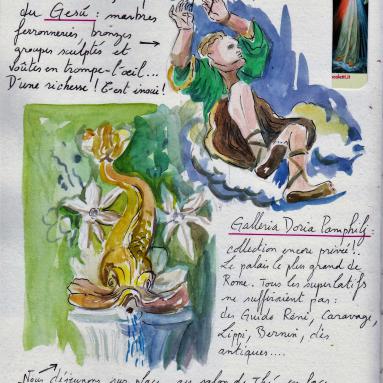 du Gesú : marbres
ferronneries, bronzes
groupes sculptés et
voûtes en trompe-l'œil...
D'une richesse ! C'est inouï !
Galleria Doria Pamphilj :
collection encore privée !..
Le palais le plus grand de
Rome.. Tous les superlatifs
ne suffiraient pas :
des Guido Réni, Caravage,
Lippi, Bernin, des
antiques....
Nous déjeunons sur place, au salon de Thé, en face